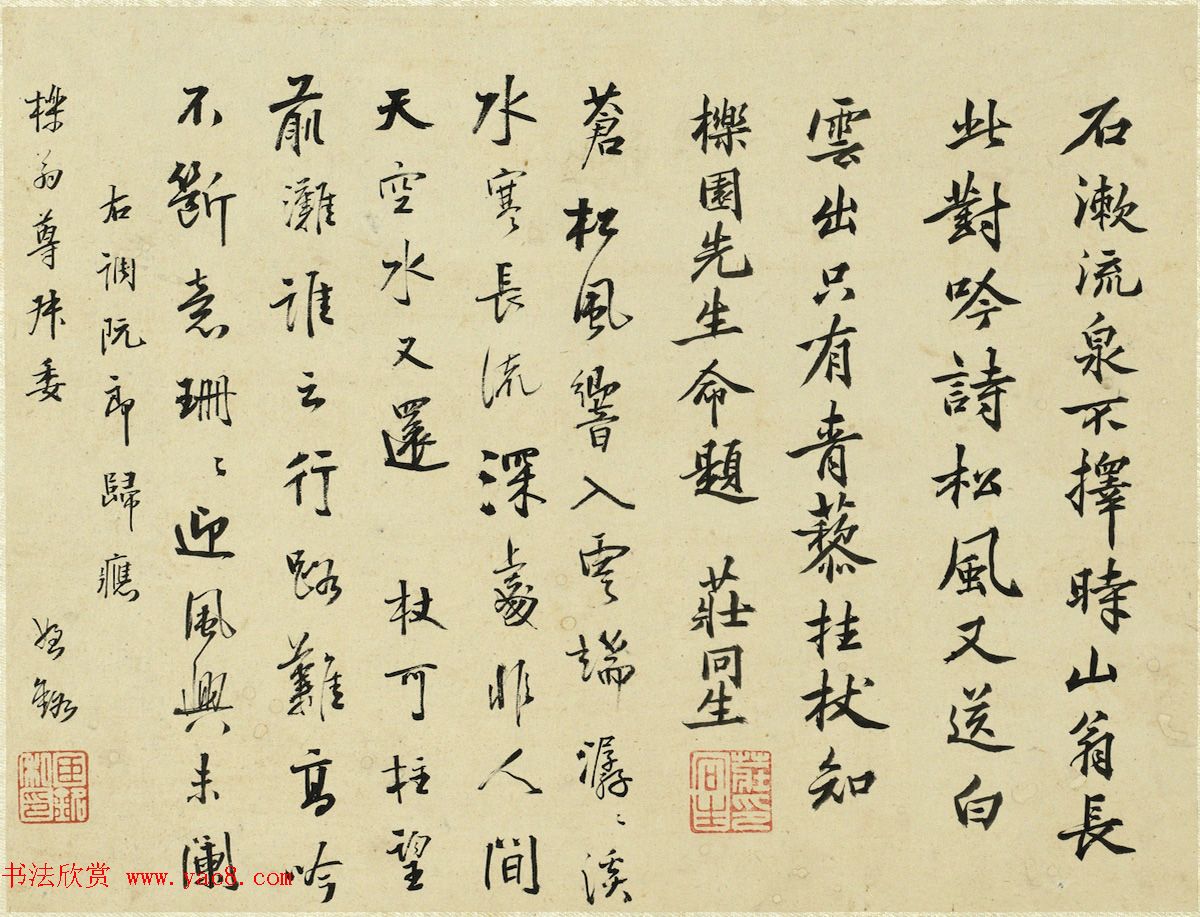 石漱流泉不擇時山翁長
此對吟詩松風又送白
雲出只有青藜拄杖知
櫟園先生命題 莊冋生
莊冋生印
蒼松風響入雲端潺〻溪
水寒長流深處非人間
天空水又還 杖可拄望
前灘誰云行路難高吟
不斷意珊〻迎風興未闌
右調阮郎歸應
櫟翁尊叔委
书法欣赏 www.yac8.com